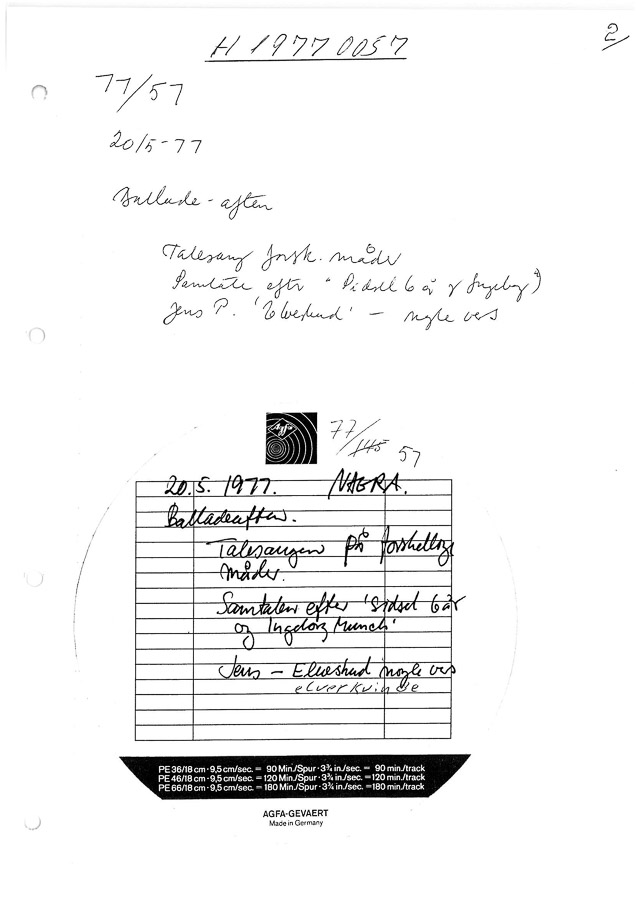 H 1977 0057
2/
77/57
20/5-77
Ballade-aften
Talesang forsk. måder
Samtale efter "Sidsel 6 år og Ingeborg")
Jens P. 'Elverskud' - nogle vers
Agfa
77/145 57
20.5.1977. NAGRA.
Balladeaften.
Talesangen på forskellige
måder.
Samtalen efter 'Sidsel 6 år
og Ingeborg Munch'
Jens - Elveskud nogle vers
elverkvinde
PE 36/18 cm · 9,5 cm/sec. = 90 Min./Spur · 3¾ in./sec. = 90 min./track
PE 46/18 cm · 9,5 cm/sec. = 120 Min./Spur · 3¾ in./sec. = 120 min./track
PE 66/18 cm · 9,5 cm/sec. = 180 Min./Spur · 3¾ in./sec. = 180 min./track
AGFA-GEVAERT
Made in Germany